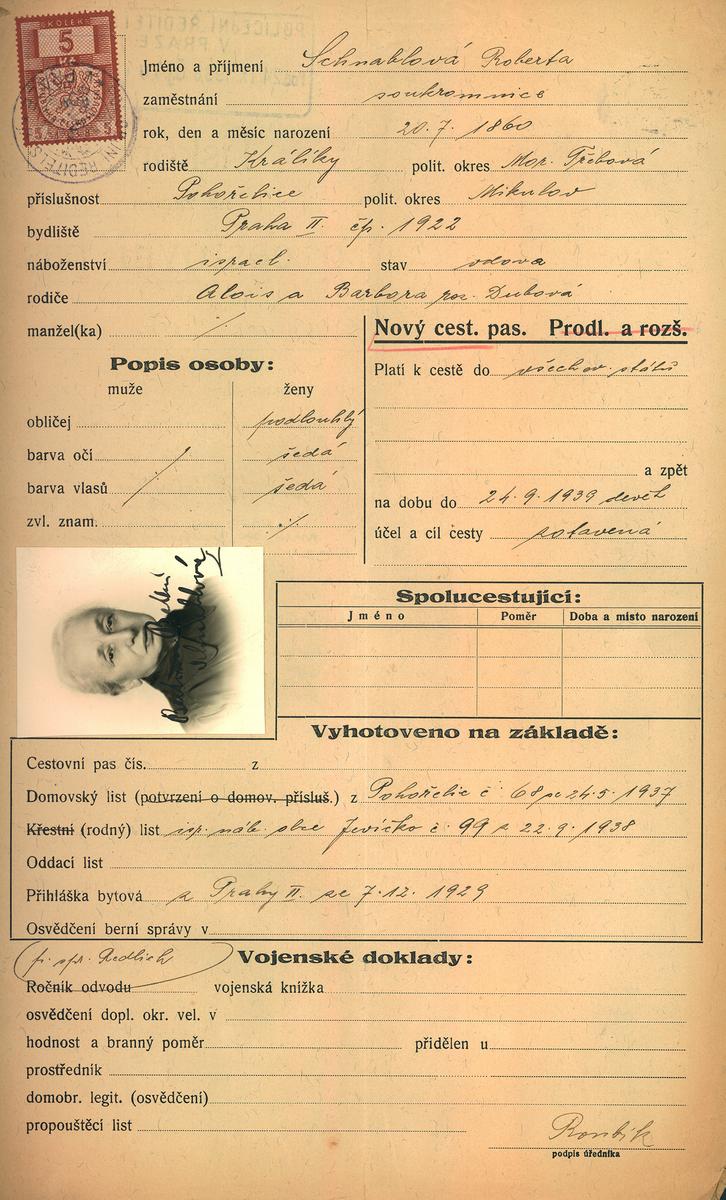 KOLEK
5
Jméno a příjmení Schnablová Roberta
zaměstnání soukromnice
rok, den a měsíc narození 20.7.1860
rodiště Králíky polit. okres Mor. Třebová
příslušnost Pohořelice polit. okres Mikulov
bydliště Praha II. čp. 1922
náboženství israel. stav vdova
rodiče Alois a Barbora roz. Dubová
manžel(ka) /
Nový cest. pas. Prodl. a rozš.
Popis osoby:
muže ženy
obličej podlouhlý
barva očí šedá
barva vlasů šedá
zvl. znam. ./.
Platí k cestě do všech ev. států
a zpět
na dobu do 24.9.1939 devět
účel a cíl cesty zotavená
Spolucestující:
Jméno Poměr Doba a místo narození
Vyhotoveno na základě:
Cestovní pas čís. z
Domovský list (potvrzení o domov. přísluš.) z Pohořelic č. 68 ze 24.5.1937
Křestní (rodný) list isr. náb. obce Jevíčko č. 99 z 22.9.1938
Oddací list
Přihláška bytová z Prahy II. ze 7.12.1929
Osvědčení berní správy v
Redlich
Vojenské doklady:
Ročník odvodu vojenská knížka
osvědčení dopl. okr. vel. v
hodnost a branný poměr přidělen u
prostředník
domobr. legit. (osvědčení)
propouštěcí list
podpis úředníka